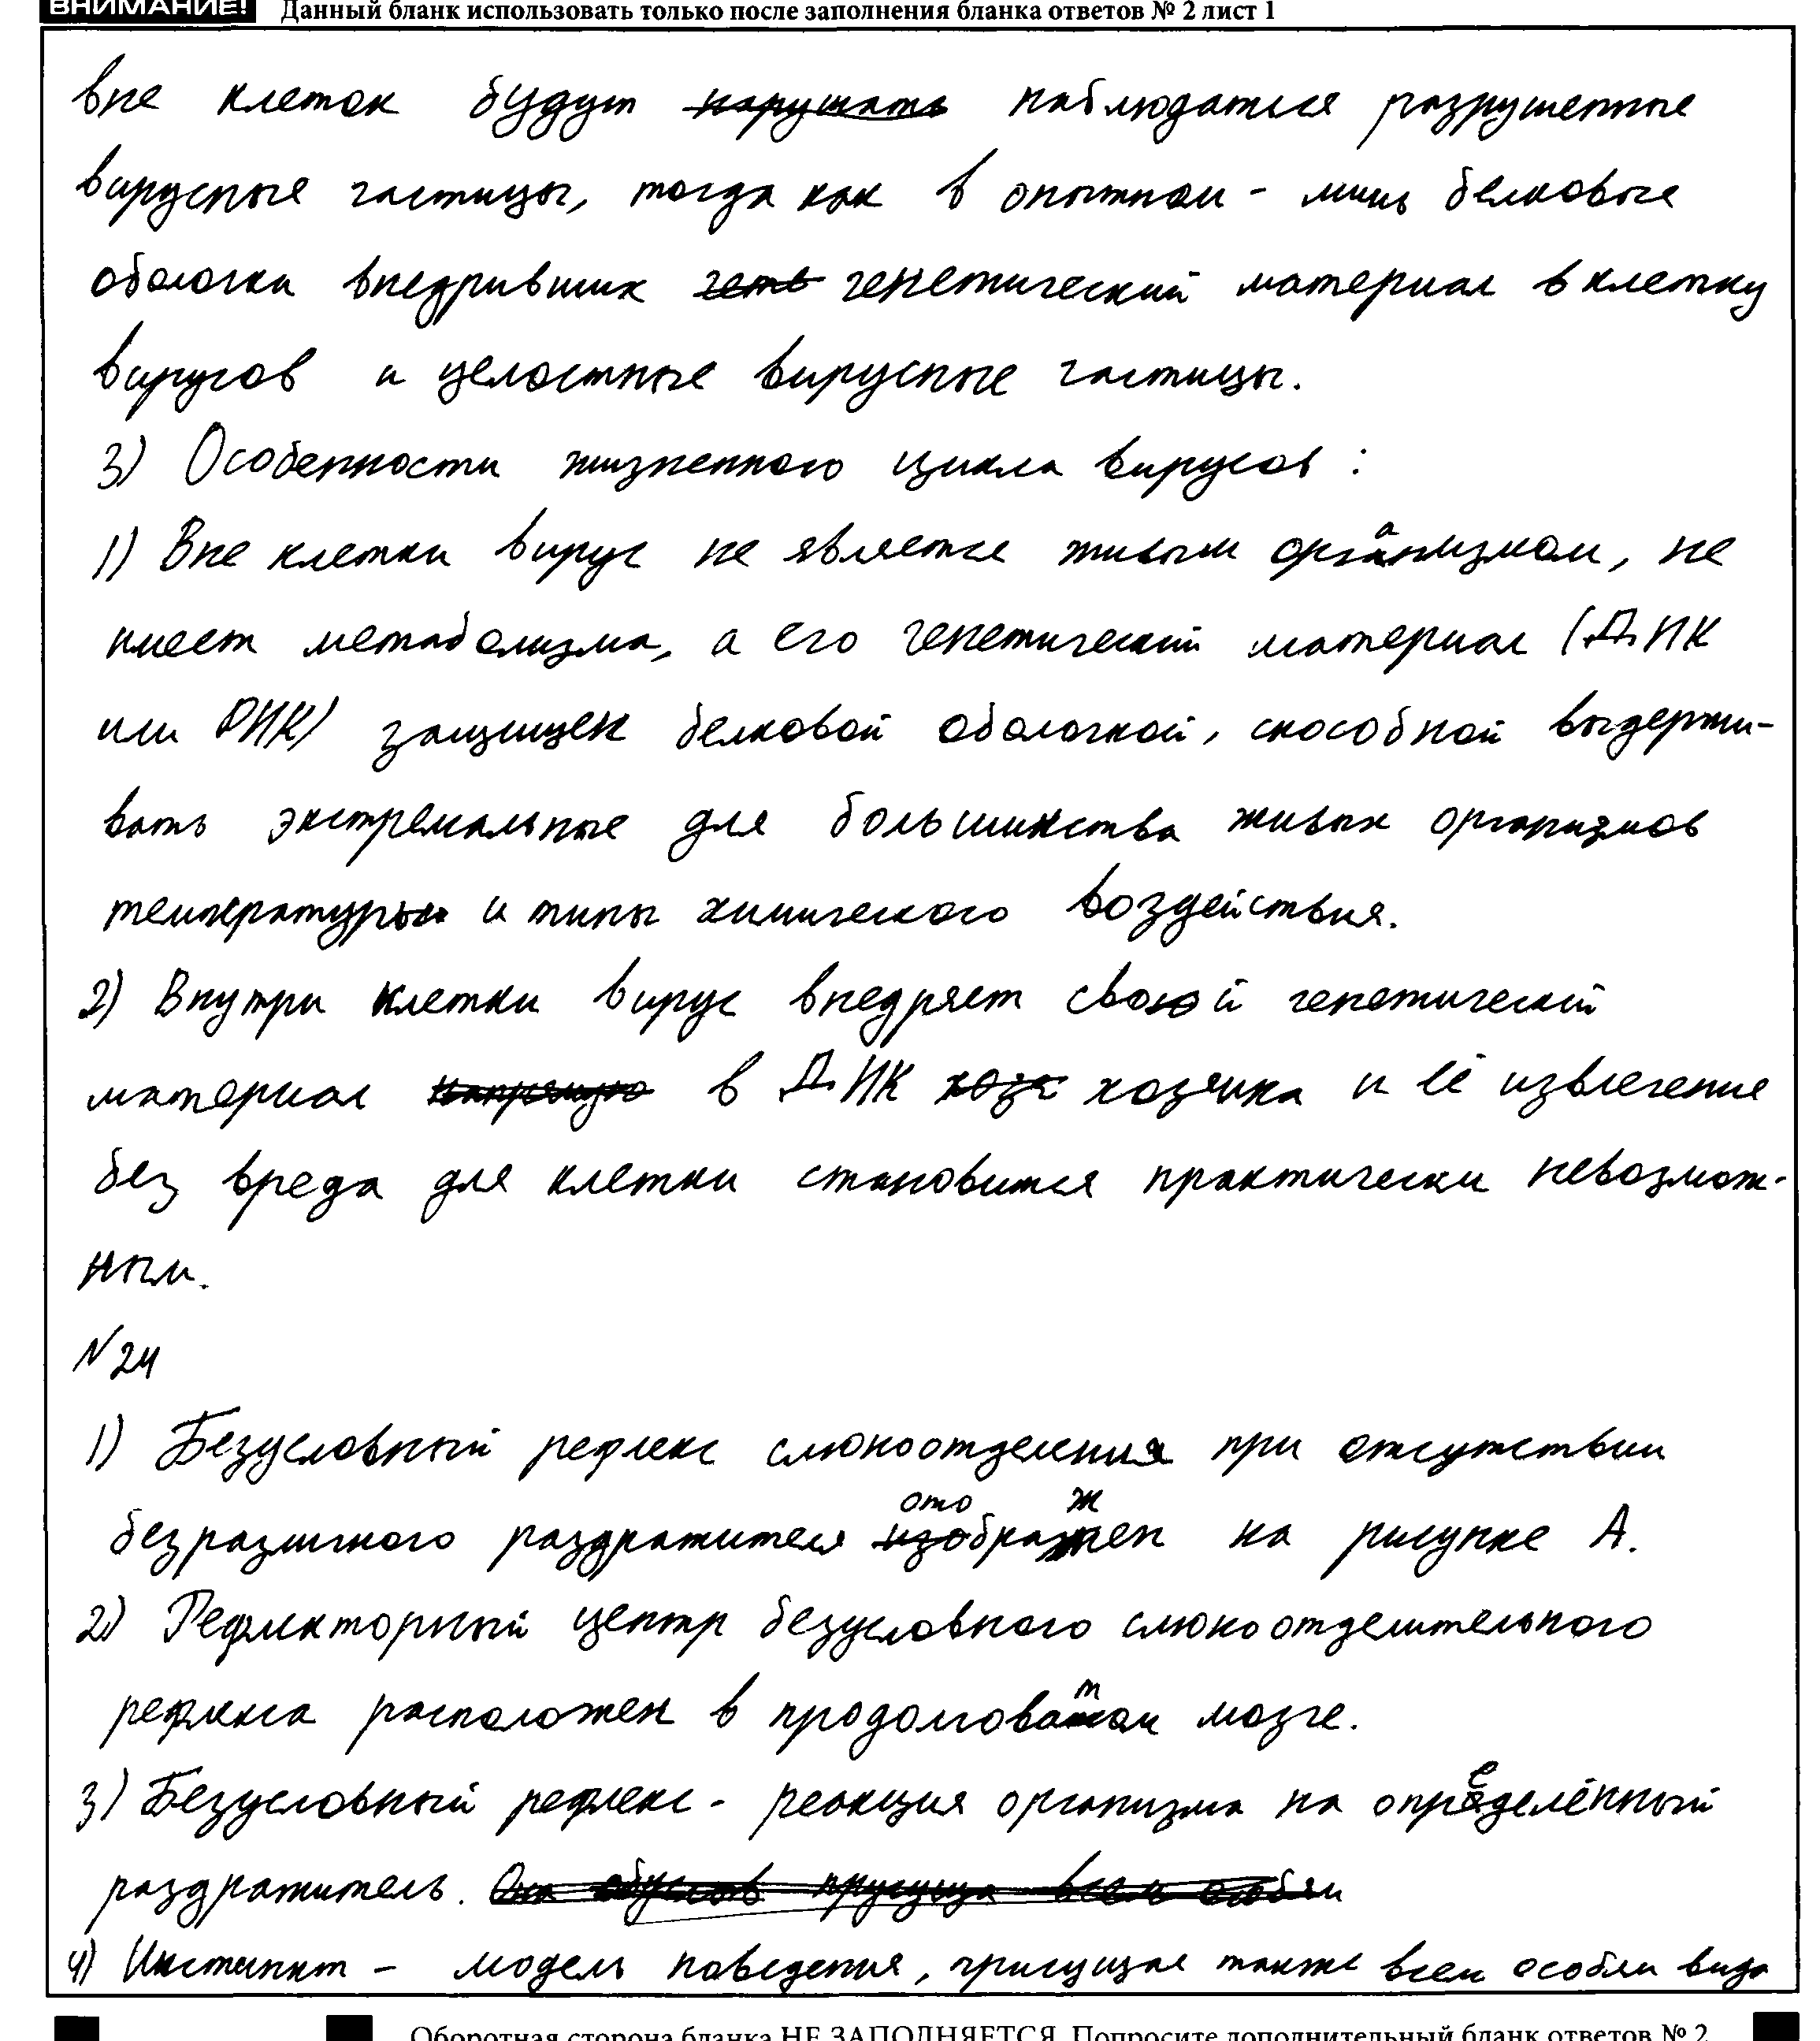 ВНИМАНИЕ! Данный бланк использовать только после заполнения бланка ответов № 2 лист 1
вне клеток будут нарушать наблюдаться разрушенные
вирусные частицы, тогда как в опытном - лишь белковые
оболочки внедривших генетический материал в клетку
вирусов и целостные вирусные частицы.
3) Особенности жизненного цикла вирусов:
1) Вне клетки вирус не является живым организмом, не
имеет метаболизма, а его генетический материал (ДНК
или РНК) защищен белковой оболочкой, способной выдержи-
вать экстремальные для большинства живых организмов
температуры и типы химического воздействия.
2) Внутри клетки вирус внедряет свой генетический
материал напрямую в ДНК хозя хозяина и её извлечение
без вреда для клетки становится практически невозмож-
ным.
№24
1) Безусловный рефлекс слюноотделения при отсутствии
безразличного раздражителя отображен на рисунке А.
2) Рефлекторный центр безусловного слюноотделительного
рефлекса расположен в продолговатом мозге.
3) Безусловный рефлекс - реакция организма на определённый
раздражитель.
4) Инстинкт - модель поведения, присущая также всем особям вида
Оборотная сторона бланка НЕ ЗАПОЛНЯЕТСЯ. Попросите дополнительный бланк ответов № 2